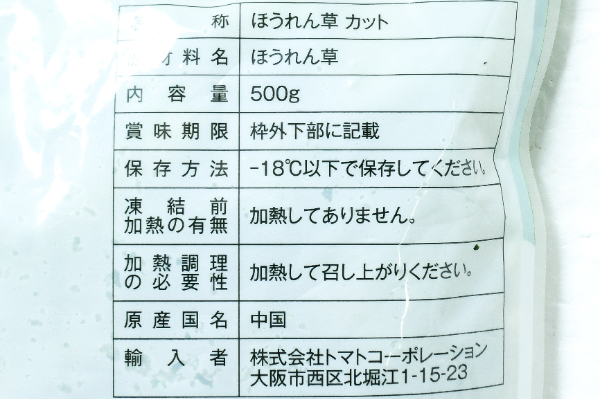 称 ほうれん草 カット
材料名 ほうれん草
内容量 500g
賞味期限 枠外下部に記載
保存方法 -18℃以下で保存してください。
凍結前
加熱の有無 加熱してありません。
加熱調理
の必要性 加熱して召し上がりください。
原産国名 中国
輸入者 株式会社トマトコーポレーション
大阪市西区北堀江1-15-23